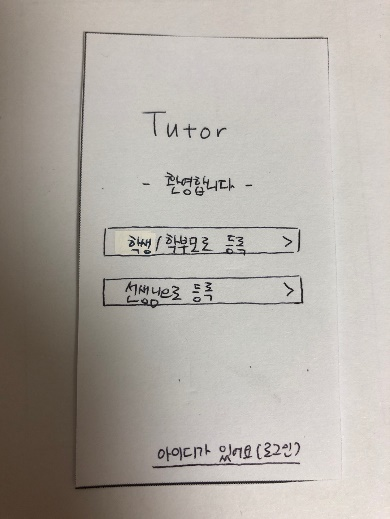 Tutor
- 환영합니다 -
학생/학부모로 등록 >
선생님으로 등록 >
아이디가 있어요(로그인)